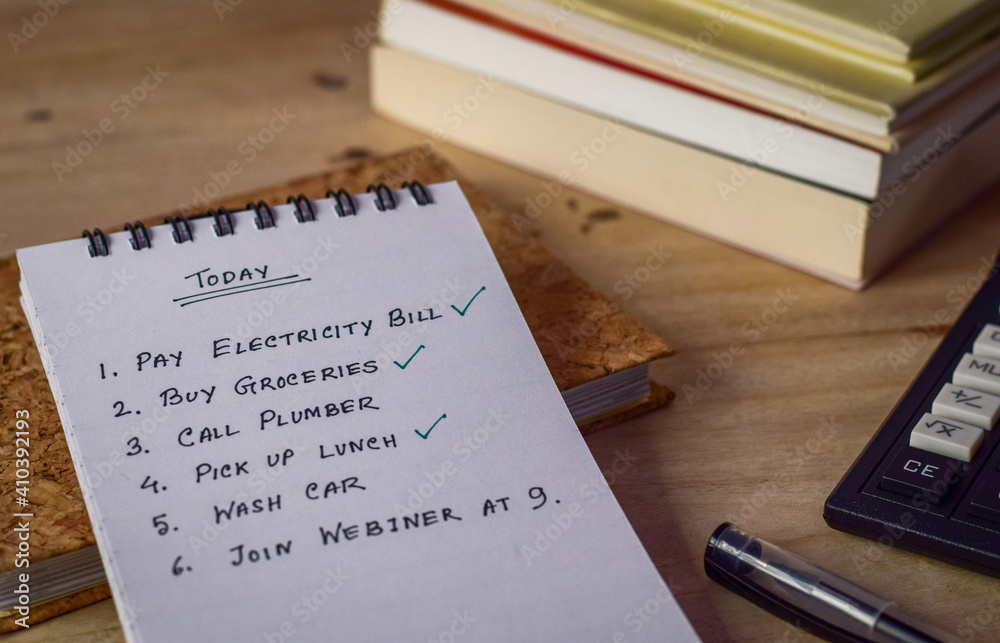 Today
1. Pay Electricity Bill ✓
2. Buy Groceries ✓
3. Call Plumber
4. Pick up lunch ✓
5. Wash car
6. Join Webiner at 9.
MU
+/-
√X
CE
Adobe Stock | #410392193